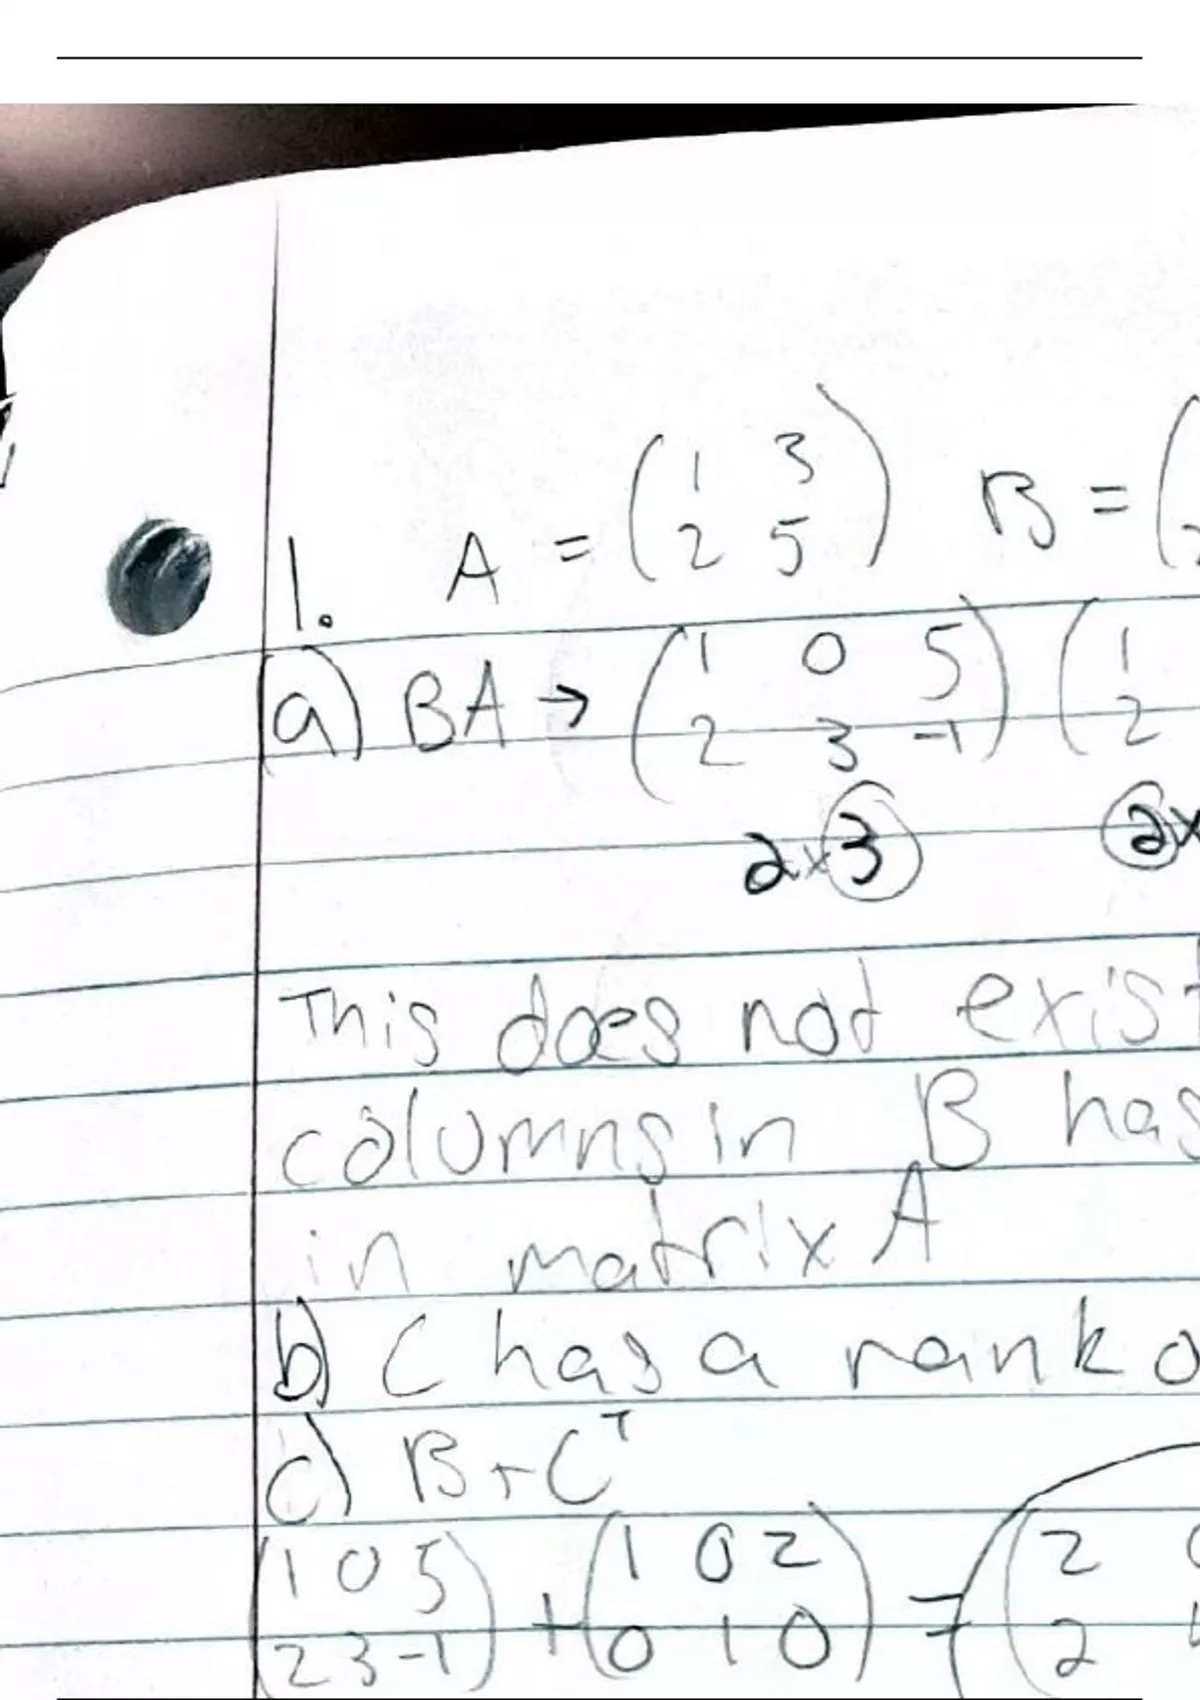 1. A = ( 1 3 ) B = (
2 5
a) BA → ( 1 0 5 ) ( 1
2 3 -1 2
2x3 2x
This does not exist
columns in B has
in matrix A
b) C has a rank
c) B+Cᵀ
( 1 0 5 ) + ( 1 0 2 ) = ( 2
2 3 -1 0 1 0 2